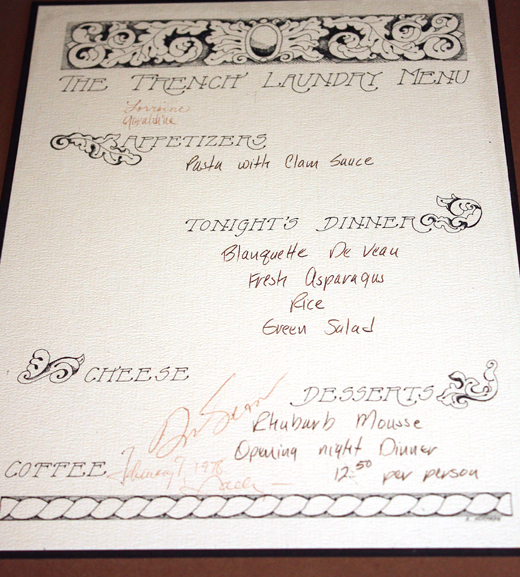 THE FRENCH LAUNDRY MENU
Lorraine
Geraldine
APPETIZERS
Pasta with Clam Sauce
TONIGHT'S DINNER
Blanquette De Veau
Fresh Asparagus
Rice
Green Salad
CHEESE
DESSERTS
Rhubarb Mousse
Opening night Dinner
12.50 per person
COFFEE
February 7, 1978